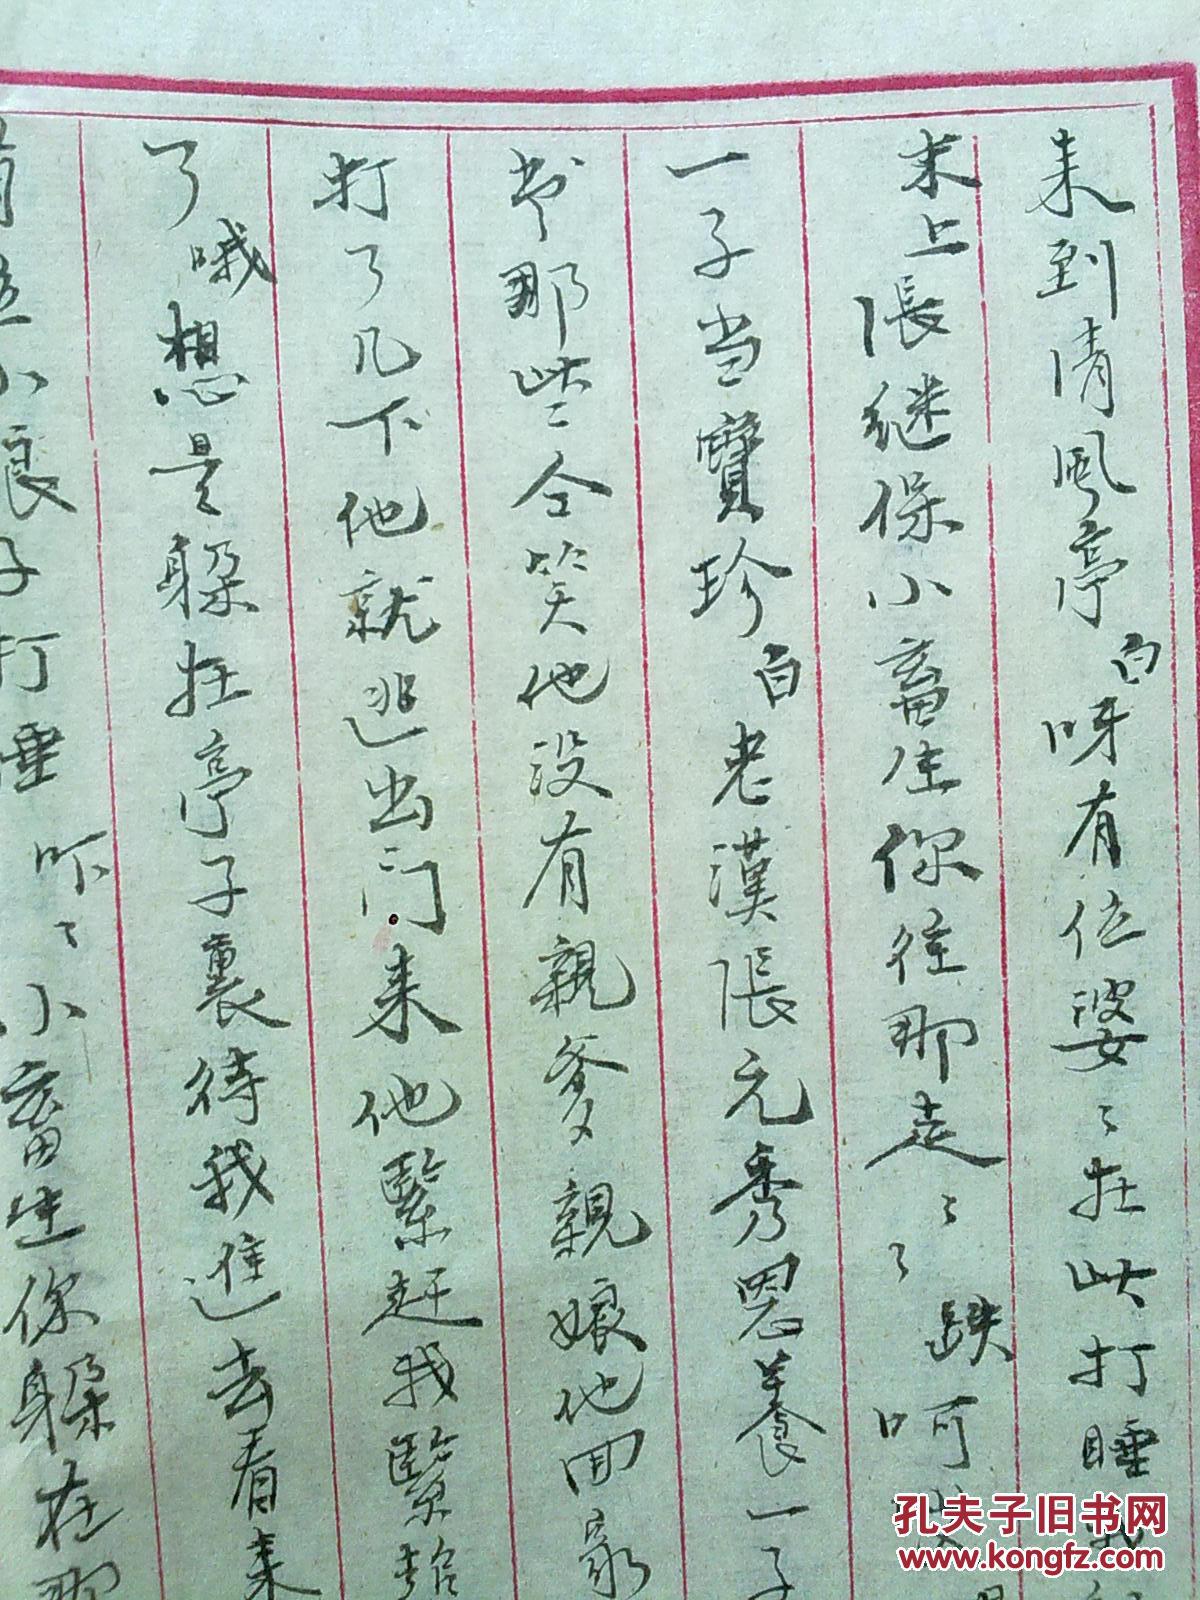 来到清風亭白呀有位婆〻在此打睡我
末上張継保小畜生你往那走〻〻跌呵
一子当寶珍白老漢張元秀恩養一子
书那些仝笑他没有親爹親娘他回家
打了几下他就逃出门来他緊赶我緊
了哦想是躲在亭子裏待我進去看来
小娘子打睡吓〻小畜生你躲在那
孔夫子旧书网
www.kongfz.com